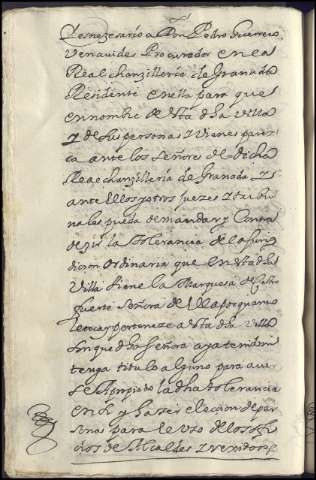 es nezesario a Don Pedro Guerrero
Venauides Procurador en la
Real chanzilleria de Granada
Residente en ella para que
en nombre de esta dha Villa
y de sus personas i vienes parez
ca ante los Señores de dicha
Real chanzilleria de Granada, y
ante ellos y otros juezes i tribu
nales pueda demandar y Contra
dezir la tolerancia de la Juris
dicion Ordinaria que en esta dha
Villa tiene la Marquesa de Castro
fuerte Señora de ella porque no
le toca y perteneze a esta dha Villa
sin que dha Señora aya tenido ni
tenga titulo alguno para auer
se Rompido la dha tolerancia
en si y hazer eleccion de per
sonas para el vso de los ofi
cios de Alcaldes i rexidores